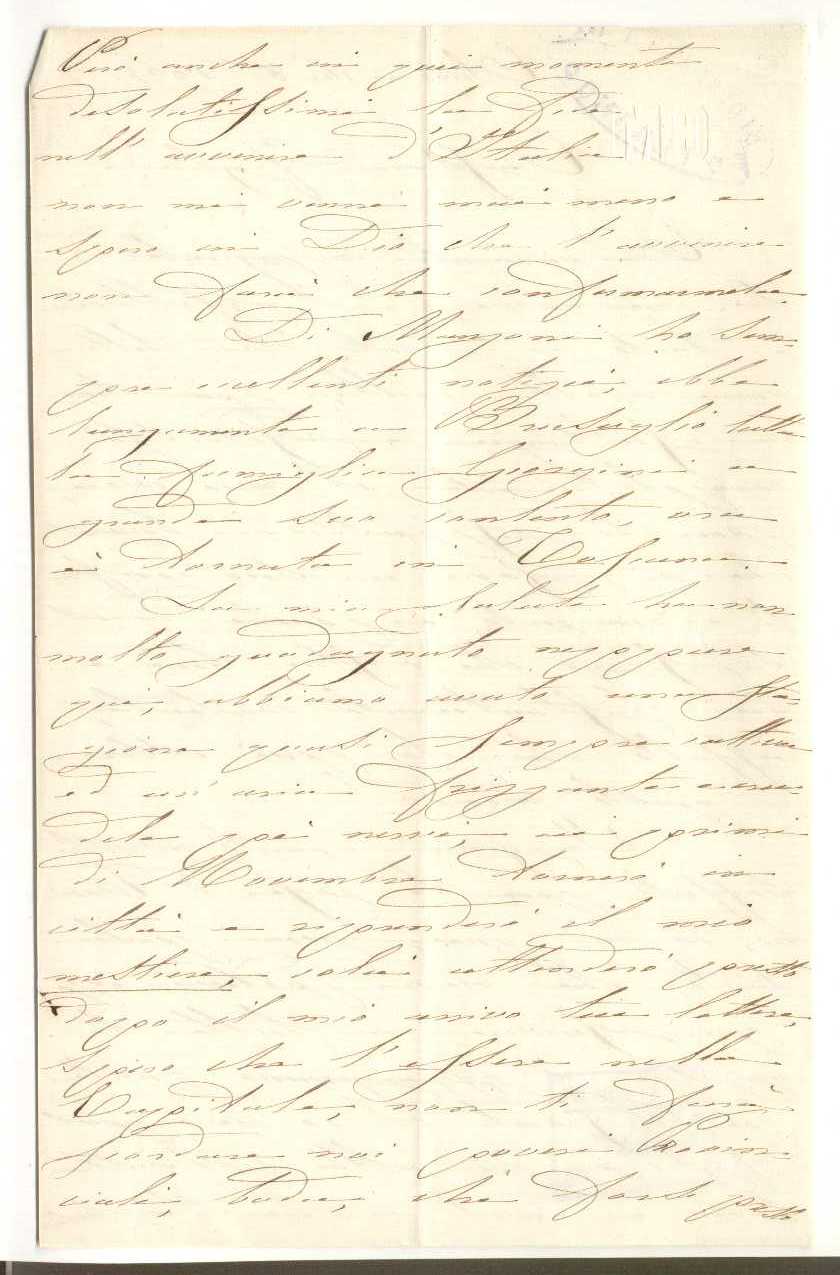 Però anche in quei momenti
desolatissimi la Fede
nell'avvenire d'Italia
non mi venne mai meno e
spero in Dio che l'avvenire
non farà che confermarmela.
Di Manzoni ho sem-
pre eccellenti notizie, ebbe
lungamente a Brusuglio tutta
la famiglia Giorgini a
grande suo contento, ora
è tornata in Toscana.
La mia salute ha non
molto guadagnato neppure
qui, abbiamo avuto una sta-
gione quasi sempre cattiva
ed un'aria frizzante e cru-
dele pei nervi, ai primi
di Novembre tornerò in
città e riprenderò il mio
mestiere, colà attenderò presto
dopo il mio arrivo tue lettere,
spero che l'essere nella
Capitale, non ti farà
scordare noi poveri Provin-
ciali, bada, chè forse presto